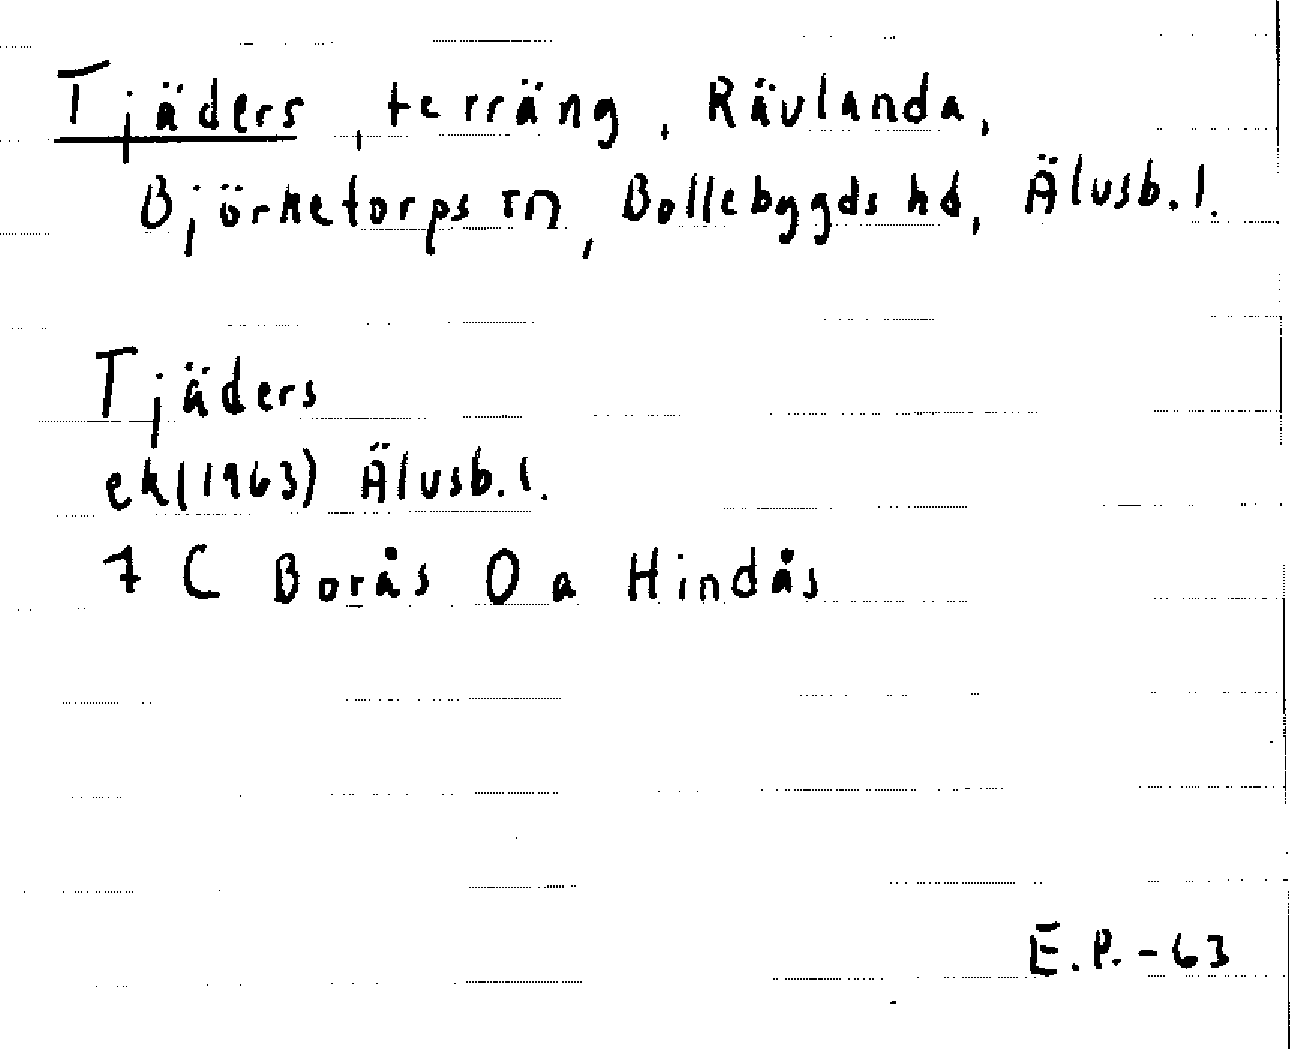 Tjäders, terräng, Rävlanda,
Björketorps sn, Bollebygds hd, Älvsb. l.
Tjäders
ek (1963) Älvsb. l.
7 C Borås O a Hindås
E.P. - 63